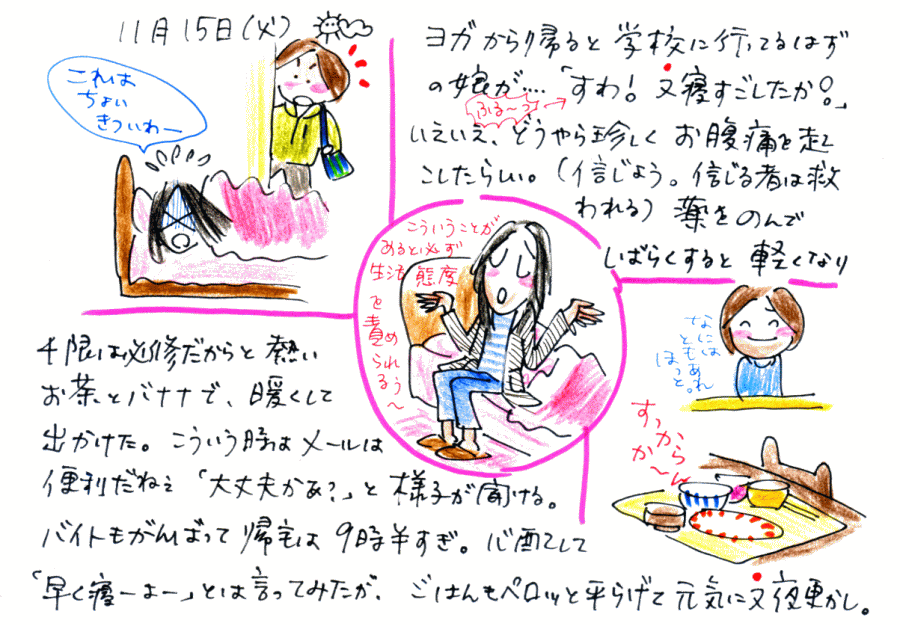 11月15日(火)
これは
ちょい
きついわー
ヨガから帰ると学校に行ってるはず
の娘が‥‥「すわ!又寝すごしたか?」
ふる〜っ→
いえいえ、どうやら珍しくお腹痛を起
こしたらしい。(信じよう。信じる者は救
われる)薬をのんで
しばらくすると軽くなり
こういうことが
あると必ず
生活態度
を責め
られるぅ〜
なには
ともあれ
ほっと。
4限は必修だからと熱い
お茶とバナナで、暖くして
出かけた。こういう時はメールは
便利だねぇ「大丈夫かぁ?」と様子が聞ける。
バイトもがんばって帰宅は9時半すぎ。心配して
「早く寝ーよー」とは言ってみたが、ごはんもペロッと平らげて元気に又夜更かし。
すっからかん
か〜